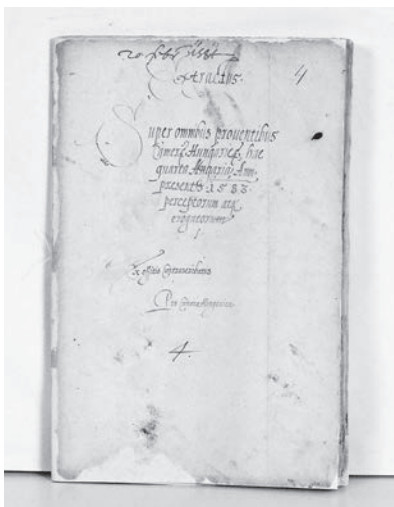 Extractus
4
Super omnibus proventibus
Camere Hungarice, hac
quarta Angaria, Ann
presentis 1583
perceptorum atq
erogatorum
Ex officio
Pro Camera Hungarica
4.